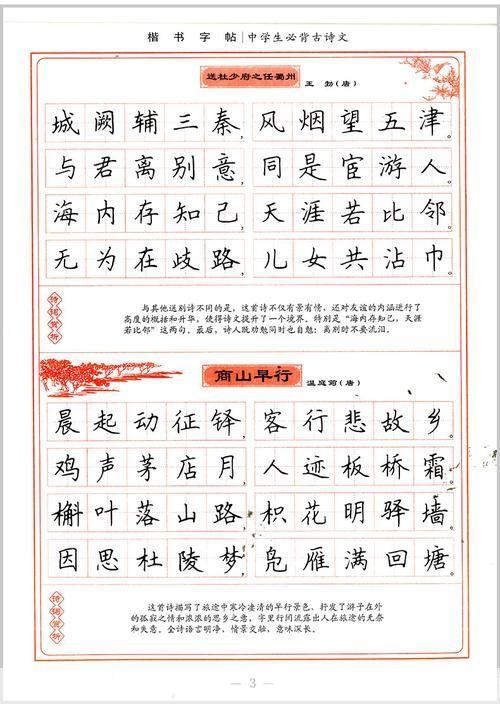 楷书字帖|中学生必背古诗文
送杜少府之任蜀州 王勃(唐)
城阙辅三秦,风烟望五津。
与君离别意,同是宦游人。
海内存知己,天涯若比邻。
无为在歧路,儿女共沾巾。
诗词赏析
与其他送别诗不同的是，这首诗不仅有景有情，还对友谊的内涵进行了
高度的概括和升华，使得诗文提升了一个境界。特别是“海内存知己，天涯
若比邻”这两句。最后，诗人既劝勉同时也自勉：离别时不要流泪。
商山早行 温庭筠(唐)
晨起动征铎,客行悲故乡。
鸡声茅店月,人迹板桥霜。
槲叶落山路,枳花明驿墙。
因思杜陵梦,凫雁满回塘。
诗词赏析
这首诗描写了旅途中寒冷凄清的早行景色，抒发了游子在外
的孤寂之情和浓浓的思乡之意，字里行间流露出人在旅途的无奈
和失意。全诗语言明净，情景交融，意味深长。
— 3 —